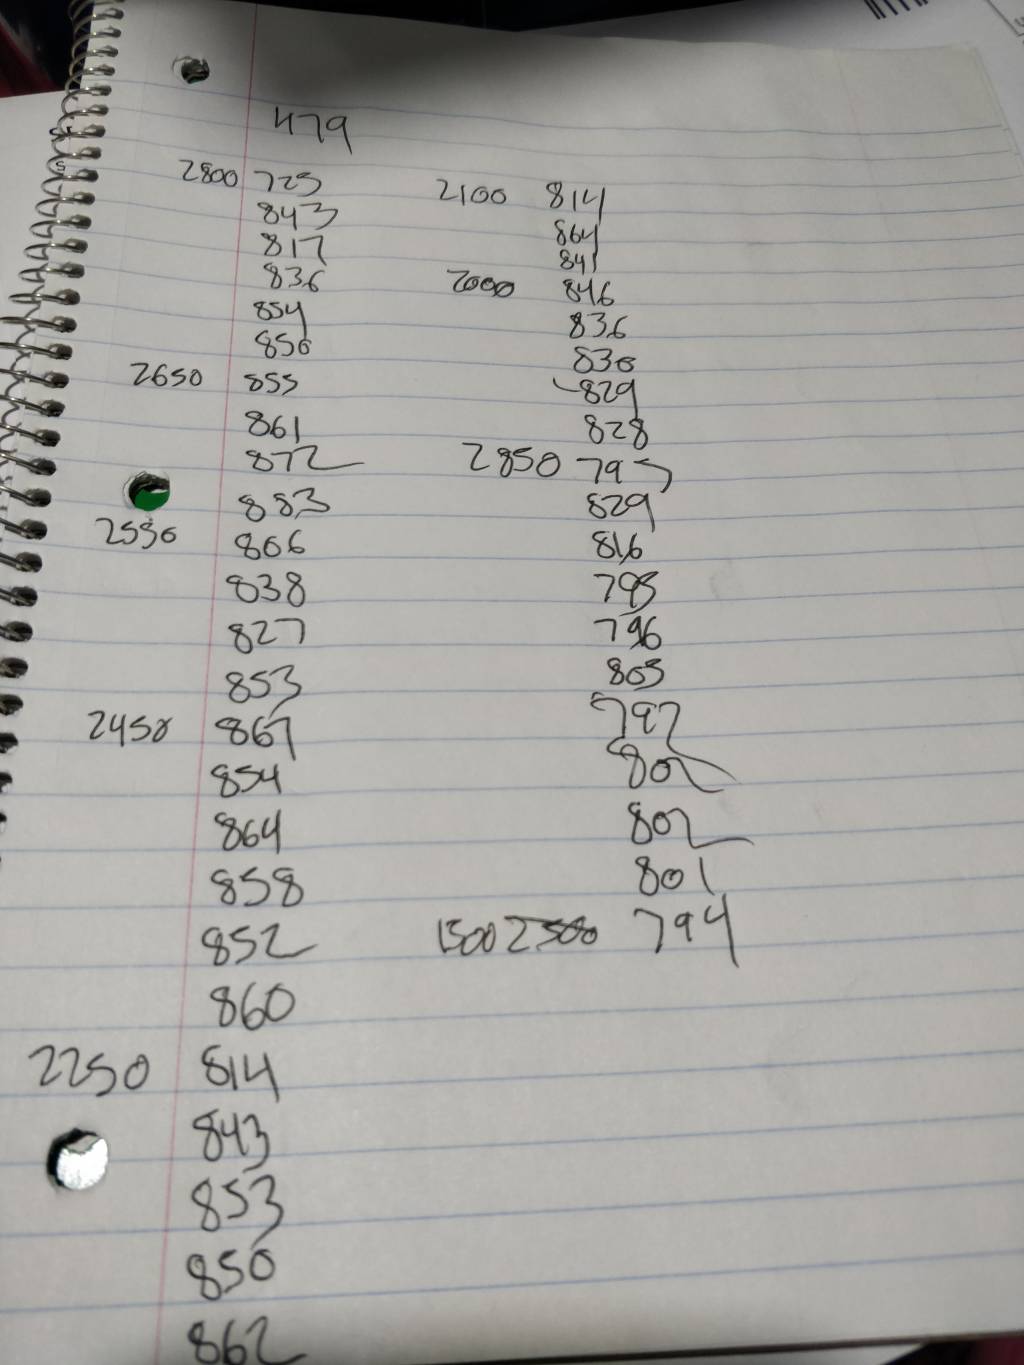 479
2800 725
843
817
836
854
850
2650 855
861
872
883
2550
806
838
827
853
2450 867
854
864
858
852
860
2250 814
843
853
850
862
2100 814
864
841
2000 846
836
830
829
828
2850 795
829
816
795
796
805
797
802
802
801
1500 2500 794